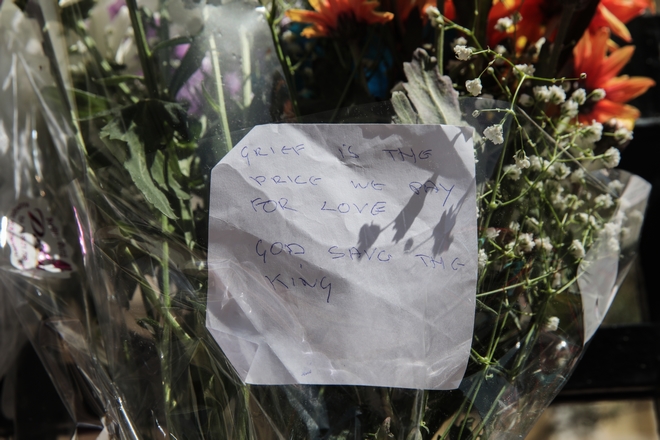 GRIEF IS THE
PRICE WE PAY
FOR LOVE
GOD SAVE THE
KING